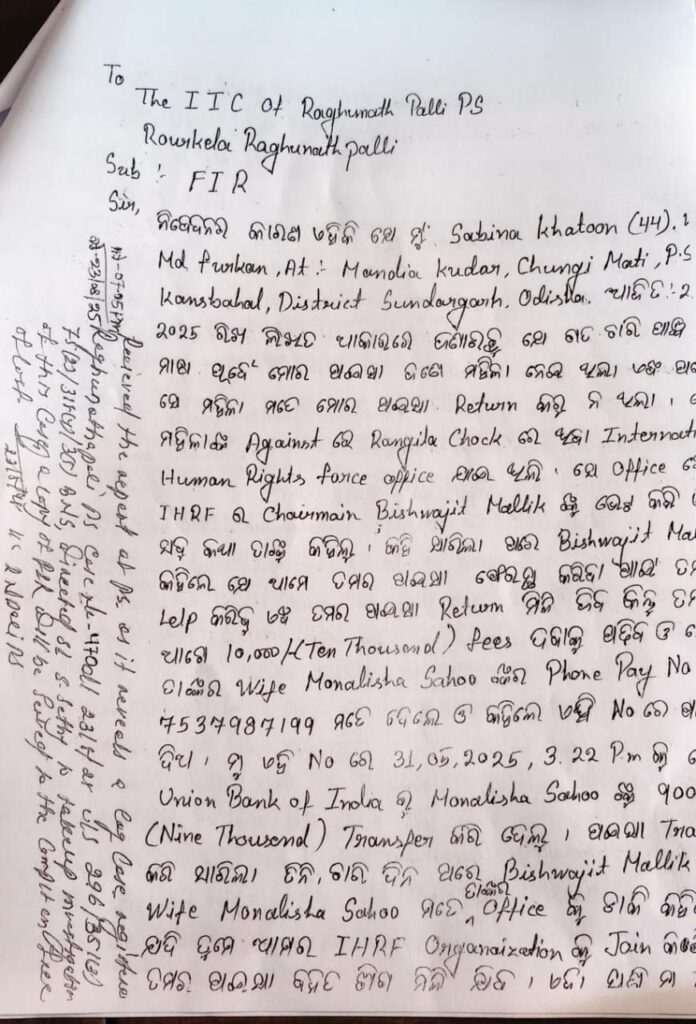 To
The IIC Of Raghunath Palli PS
Rourkela Raghunathpalli
Sub :- FIR
Sir,
ନିବେଦନର କାରଣ ଏହିକି ଯେ ମୁଁ Sabina Khatoon (44).
Md furkan, At :- Mandia kudar, Chungi Mati, P.S
Kansbahal, District Sundargarh, Odisha.
2025 ରିଖ ଲିଖିତ ଆକାରରେ ଜଣାଉଛୁ ଯେ ଗତ ଚାରି ପାଞ୍ଚ
ମାସ ପୂର୍ବେ ମୋର ପଇସା ଜଣେ ମହିଳା ନେଇ ଥିଲା ଏବଂ
ସେ ମହିଳା ମତେ ମୋର ପଇସା Return କରୁ ନ ଥିଲା ।
ମହିଳାଙ୍କ Against ରେ Rangila Chock ରେ ଥିବା Internati
Human Rights force office ଯାଇ ଥିଲି । ସେ Office
IHRF ର Chairmain Bishwajit Mallik ଙ୍କୁ ଭେଟ କରି
ସବୁ କଥା ତାଙ୍କୁ କହିଲୁ । କହି ସାରିଲା ପରେ Bishwajit Ma
କହିଲେ ଯେ ଆମେ ତମର ପଇସା ଫେରସ୍ତ କରିବା ପାଇଁ
Help କରିବୁ ଏବଂ ତମର ପଇସା Return ମିଳି ଯିବ କିନ୍ତୁ
ଆଗେ 10,000/-(Ten Thousand) fees ଦବାକୁ ପଡ଼ିବ ଓ
ତାଙ୍କର Wife Monalisha Sahoo ଙ୍କର Phone Pay No
7537987199 ମତେ ଦେଲେ ଓ କହିଲେ ଏହି No ରେ
ଦିଅ । ମୁଁ ଏହି No ରେ 31,05,2025, 3.22 P.m କୁ
Union Bank of India ରୁ Monalisha Sahoo ଙ୍କୁ 900
(Nine Thousend) Transfer କରି ଦେଲୁ । ପଇସା Tra
କରି ସାରିଲା ତିନି, ଚାରି ଦିନ ପରେ Bishwajit Mallik
Wife Monalisha Sahoo ମତେ ତାଙ୍କର Office କୁ ଡାକି
ଯଦି ତୁମେ ଆମର IHRF Organaization କୁ Join
ତମର ପଇସା ମିଳି ଯିବ ।
Recieved the report at PS, as it reveals a Cog Case registered
Raghunathpali PS Case No-470 dt 23/8/25 U/S 296/351(2)
75(2)/318(4)/3(5) BNS. Directed SI S. Sethy to takeup investigation
of this Case, a copy of FIR will be Served to the Complt en free
of Cost
IIC RN Pali PS